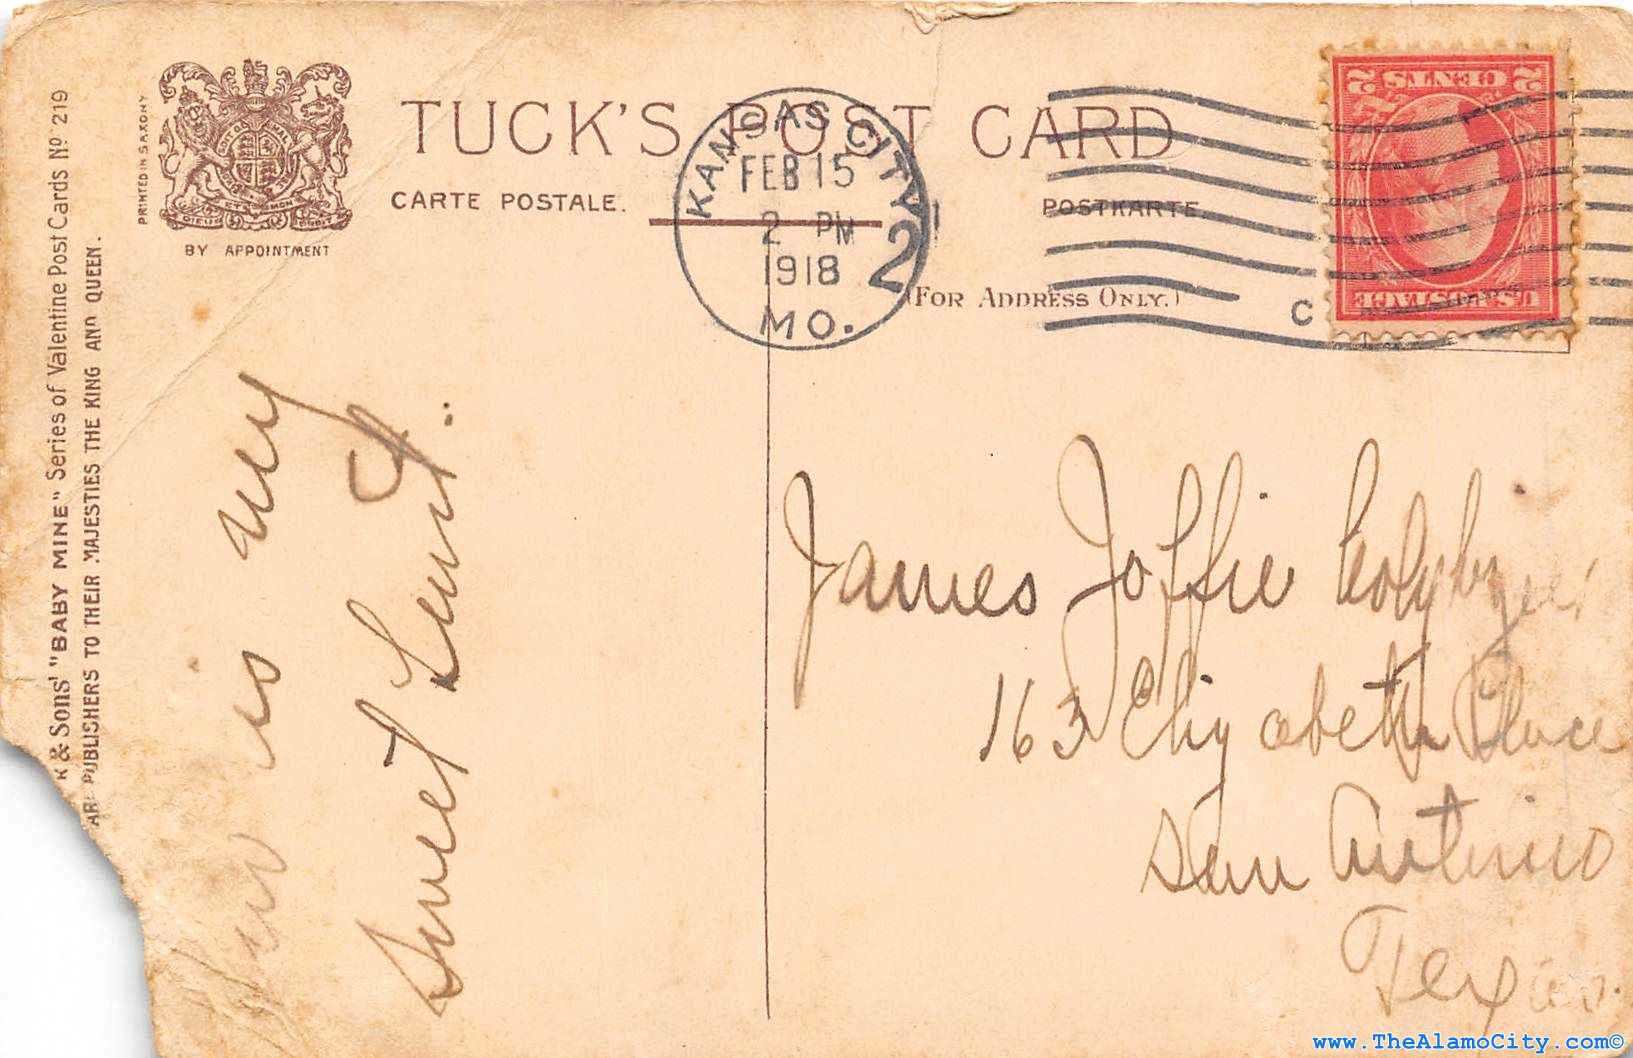 TUCK'S POST CARD
CARTE POSTALE.
POSTKARTE
(FOR ADDRESS ONLY.)
PRINTED IN SAXONY
BY APPOINTMENT
& Sons' "BABY MINE" Series of Valentine Post Cards No 219
ARE PUBLISHERS TO THEIR MAJESTIES THE KING AND QUEEN.
KANSAS CITY
FEB 15
2 PM
1918
MO.
2
C
U.S. POSTAGE
2 CENTS 2
is my
Sweet
James Joffie
163 Elizabeth Place
San Antonio
Texas.
www.TheAlamoCity.com©